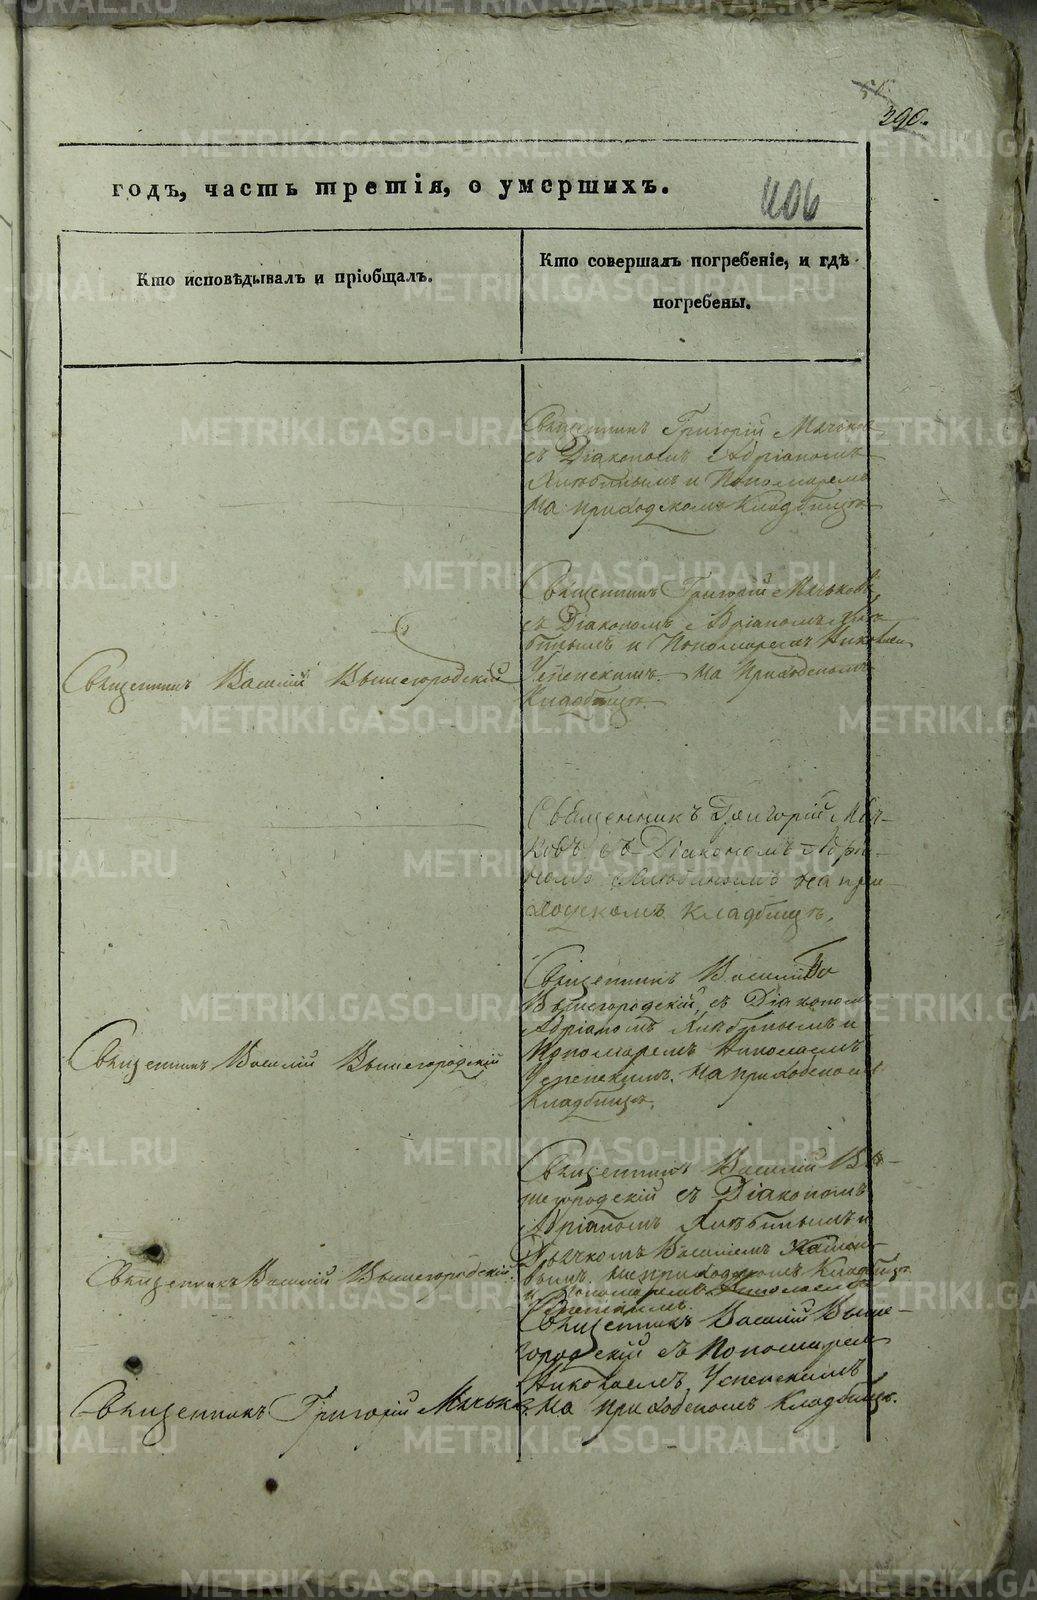 290.
406
годъ, часть третія, о умершихъ.
Кто исповѣдывалъ и пріобщалъ.
Кто совершалъ погребеніе, и гдѣ
погребены.
Священникъ Григорій Мичьков
съ Діакономъ Адріаномъ
и Пономаремъ
на приходскомъ Кладбищѣ
Священникъ Григорій Мичьковъ
съ Діакономъ Адріаномъ
и Пономаремъ Николаем
Успенскимъ. на Приходскомъ
Кладбищѣ.
Священникъ Василій Вышегородскій
Священникъ Григорій Мич-
ковъ съ Діакономъ Адріа-
номъ на при-
ходскомъ кладбищѣ.
Священникъ Василий
Вышегородскій, съ Діаконом
Адріаномъ и
Пономаремъ Николаемъ
Успенскимъ. на приходском
Кладбищѣ.
Священникъ Василій Вышегородскій
Священникъ Василій Вы-
шегородскій съ Діакономъ
Адріаномъ и
Дьячкомъ Василіемъ
на приходскомъ Кладбищѣ
и Пономаремъ Николаемъ
Успенскимъ.
Священникъ Василій Вышегородскій
Священникъ Василій Выше-
городскій съ Пономарем
Николаемъ Успенскимъ
на приходскомъ Кладбищѣ.
Священникъ Григорій Мичьков
METRIKI.GASO-URAL.RU